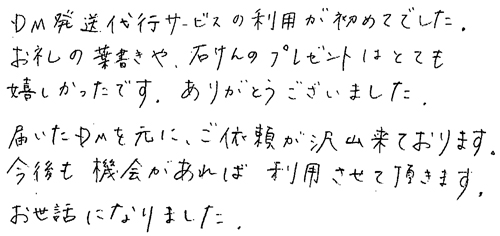 DM発送代行サービスの利用が初めてでした.
お礼の葉書きや、石けんのプレゼントはとても
嬉しかったです. ありがとうございました.
届いたDMを元に、ご依頼が沢山来ております.
今後も機会があれば利用させて頂きます.
お世話になりました.